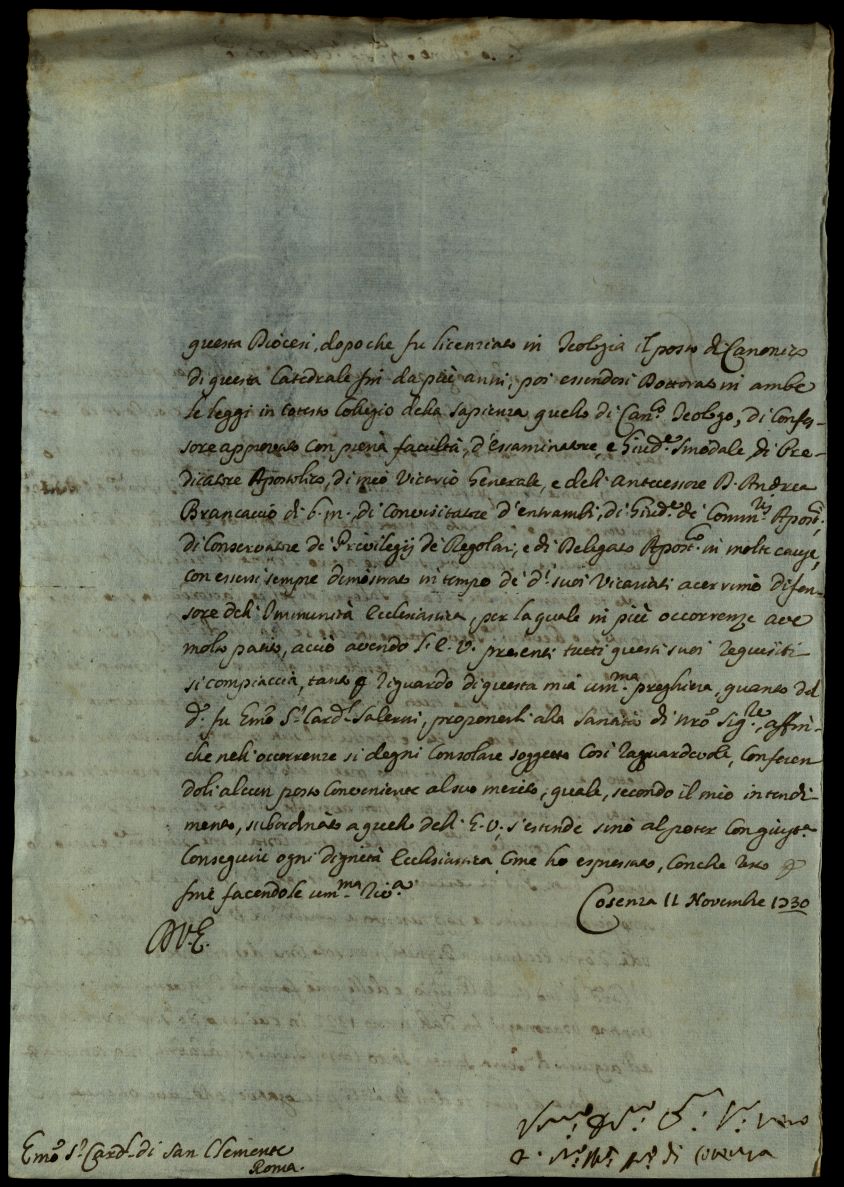 questa Diocesi, dopo che fu licenziato in Teologia il posto di Canonico
di questa Catedrale fin da più anni, poi essendosi Dottorato in ambe
le leggi in cotesto Collegio della Sapienza quello di Can.º Teologo, di Confes-
sore approvato con piena facultà, d'essaminatore, e Giud.e Sinodale, di Pre-
dicatore Apostolico, di mio Vicario Generale, e dell'Antecessore D. Andrea
Brancaccio di b. m., di Convisitatore d'entrambi, di Giud.e de' Comm.rij Apost.ci
di Conservatore de' Privilegij de' Regolari, e di Delegato Apost.co in molte cause,
con essersi sempre dimostrato in tempo de' d.i suoi Vicariati acerrimo difen-
sore dell'Immunità Ecclesiastica, per la quale in più occorrenze ave
molto patito, acciò avendo l'E. V. presenti tutti questi suoi requisiti
si compiaccia, tanto p riguardo di questa mia um.ma preghiera, quanto del
d.º fu Emo S.r Card.l Salerni, proponerli alla Santità di nro Sig.re, affin-
che nell'occorrenze si degni consolare soggetto così raguardevole, conferen
doli alcun posto conveniente al suo merito, quale, secondo il mio intendi-
mento, subordinato a quello dell'E. V. s'estende sino al poter con giust.a
conseguire ogni dignità Ecclesiastica, come ho espressato, conche resto p
fine facendole um.ma riv.a
Cosenza 11 Novembre 1730
D V. E.
Emo S.r Card.l di San Clemente
Roma.
di Cosenza